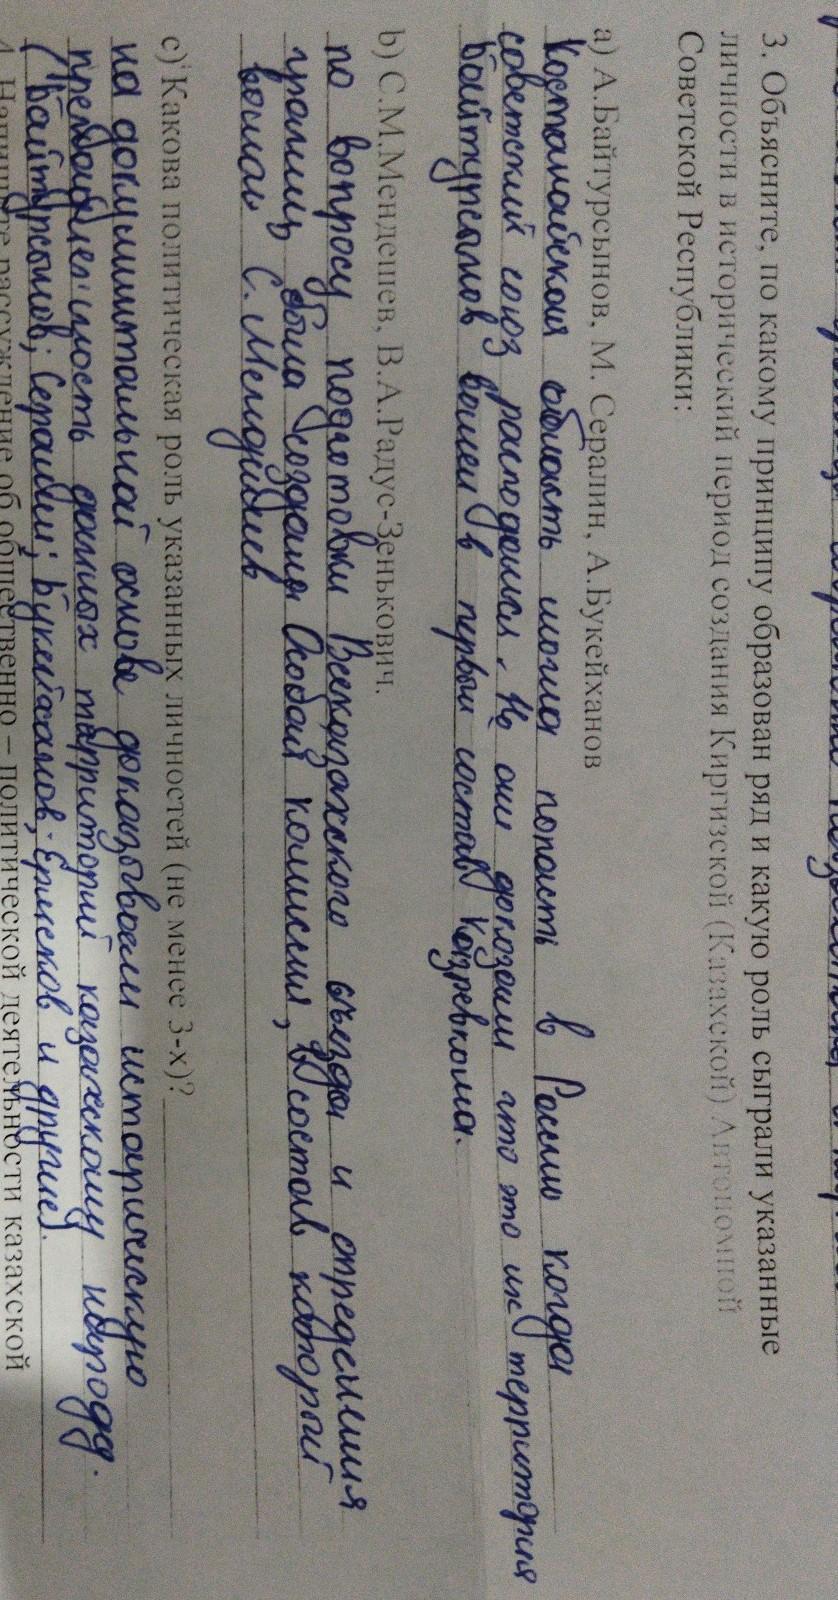 3. Объясните, по какому принципу образован ряд и какую роль сыграли указанные
личности в исторический период создания Киргизской (Казахской) Автономной
Советской Республики:
а) А.Байтурсынов, М. Сералин, А.Букейханов
Костанайская область могла попасть в Россию когда
советский союз распадался. Но они доказали что это их территория
Байтурсынов вошел в первый состав Казревкома.
b) С.М.Мендешев, В.А.Радус-Зенькович.
по вопросу подготовки Всеказахского съезда и определения
границ была создана Особая комиссия, в состав который
вошли С. Мендешев
с) Какова политическая роль указанных личностей (не менее 3-х)?
на документальной основе доказывали историческую
данных территорий казахскому народу.
(Байтурсынов; Сералин; Букейханов; Ермеков и другие).
4. Напишите рассуждение об общественно – политической деятельности казахской